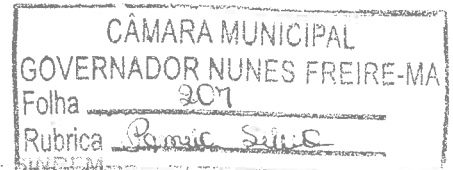 CÂMARA MUNICIPAL
GOVERNADOR NUNES FREIRE-MA
Folha 207
Rubrica